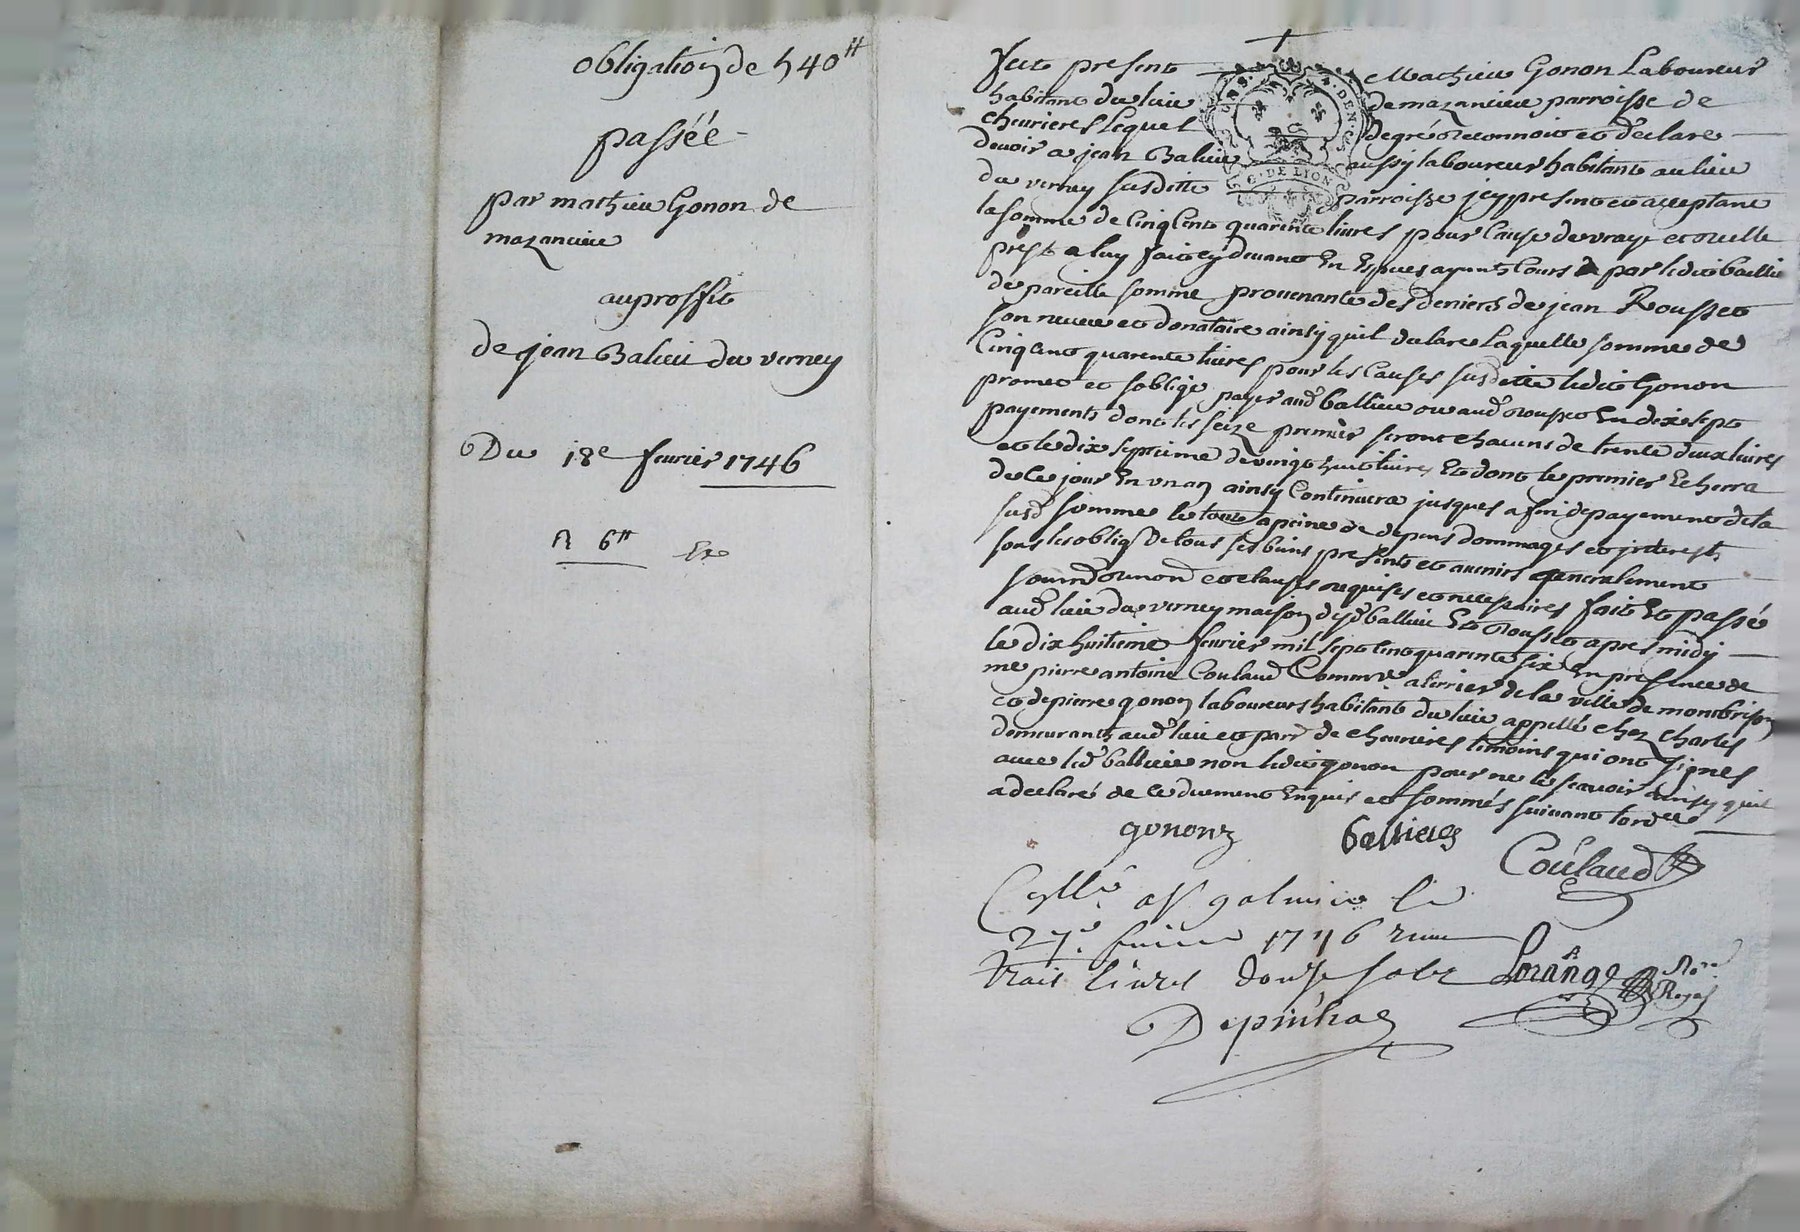 obligation de 540ᵗᵗ
passéé
par mathieu Gonon de
mazancieu
auproffit
de jean Balieu du verney
Du 18e fevrier 1746
R 6ᵗᵗ
fut present Mathieu Gonon Laboureur
habitant du lieu de mazancieu parroisse de
chevrieres lequel de gré reconnoit et declare
devoir a jean Balieu aussy laboureur habitant au lieu
du verney susditte parroisse jcy present et acceptant
la somme de Cinq Cent quarente livres pour Cause de vraye et réelle
prest a luy fait cy devant En Especes ayants Cours par ledit ballieu
de pareille somme provenante des deniers de jean Rousset
son neveu et donataire ainsy quil declare laquelle somme de
Cinq Cent quarente livres pour les Causes susditte ledit Gonon
promet et soblige payer aud ballieu ou aud rousset En dix sept
payements dont les seize premier seront chacuns de trente deux livres
et le dix septieme de vingt huit livres Et dont le premier Echerra
de Ce jour En un an ainsy Continuera jusques a fin de payement de la
susd somme le tout a peine de depens dommages et jnterests
sous les oblig De tous ses biens presents et avenirs generalement
soum renond et clauses requises et necessaires fait Et passé
aud lieu du verney maison desd ballieu Et rousset apres midy
le dix huitieme fevrier mil sept cent quarente six En presence de
me pierre antoine Coulaud Commre a terrier de la ville de montbrison
et de pierre gonon laboureur habitant du lieu appellé chez Charles
demeurants aud lieu et parr de chevrieres temoins qui ont signes
avec led ballieu non ledit gonon pour ne le scavoir ainsy quil
a declaré de Ce duement Enquis et sommés suivant lordce
gonon ballieu
Coulaud
Cllé a St galmier le
27e fevrier 1746 recu
trois livres douze sols
Depinhac
Nore
Royal
G. DE LYON